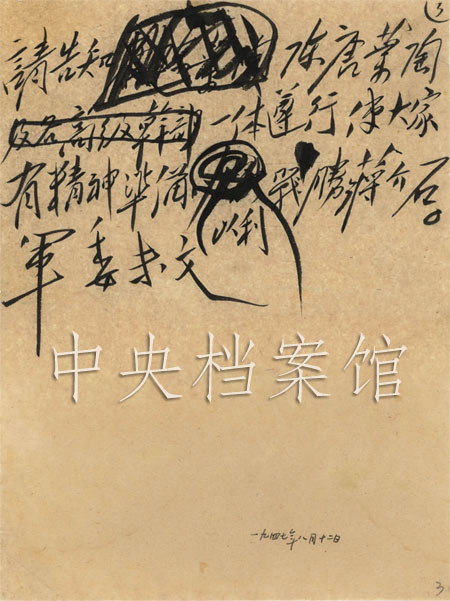 3
請告知 陈唐葉陶
及各高級幹部一体遵行使大家
有精神準備以利戰勝蔣介石。
軍委未文
中央档案馆
一九四七年八月十二日
3